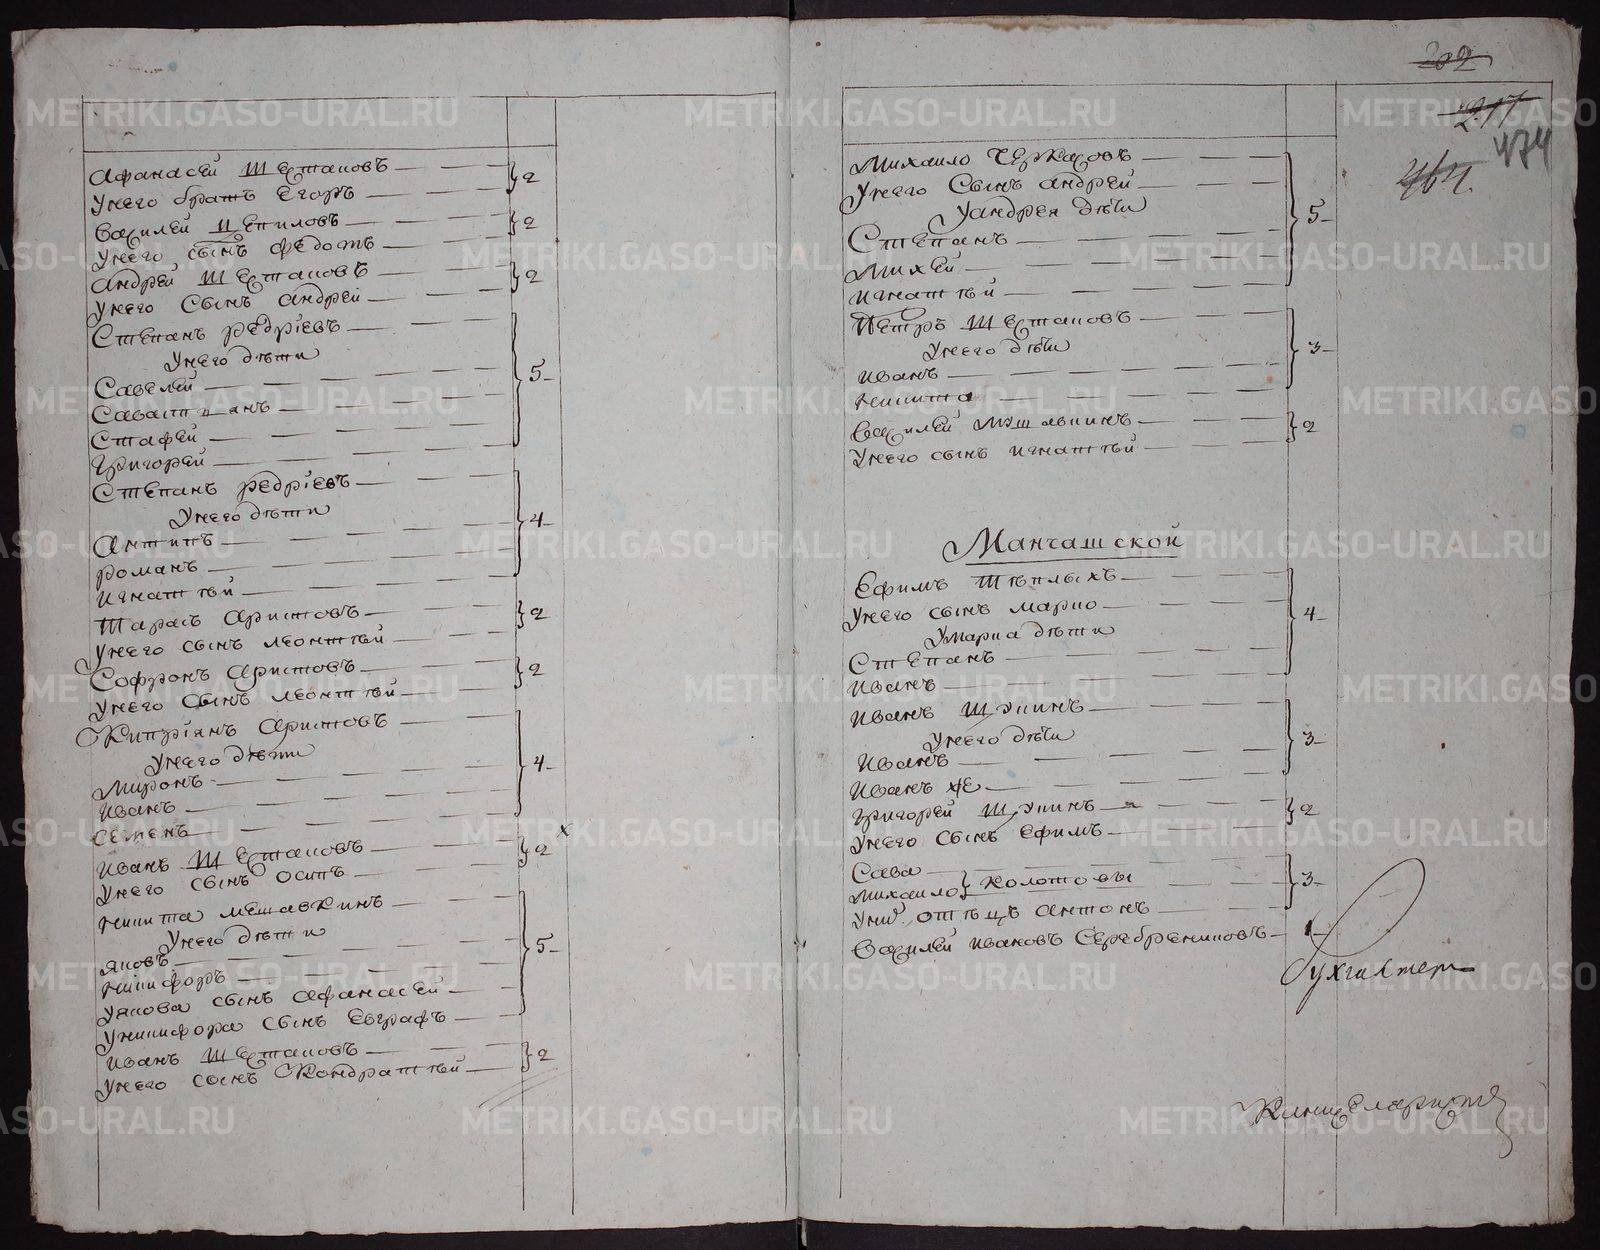 Афанасей Шестаковъ 2
Унего братъ Егоръ
Василей Шепиловъ 2
Унего сынъ Федотъ
Андрей Шестаковъ 2
Унего Сынъ Андрей
Степанъ
Унего дѣти
Савелей 5
Савастиянъ
Стафей
Григорей
Степанъ
Унего дѣти
Антипъ 4
Романъ
Игнатей
Тарасъ Аристовъ 2
Унего сынъ Леонтей
Софронъ Аристовъ 2
Унего Сынъ Леонтей
Киприянъ Аристовъ
Унего дѣти
Миронъ 4
Иванъ
Семенъ
Иванъ Шестаковъ 2
Унего сынъ Осипъ
Никита
Унего дѣти
Яковъ 5
Никифоръ
Уякова сынъ Афанасей
Уникифора сынъ Евграфъ
Иванъ Шестаковъ 2
Унего сынъ Кондратей
202
217
474
464
Михаило Черкасовъ
Унего Сынъ Андрей
Уандрея дѣти 5
Степанъ
Михей
Игнатей
Петръ Шестаковъ
Унего дѣти 3
Иванъ
Никита
Василей 2
Унего сынъ Игнатей
Манчашской
Ефимъ Теплыхъ
Унего сынъ Марко 4
Умарка дѣти
Степанъ
Иванъ
Иванъ Шукинъ
Унего дѣти 3
Иванъ
Иванъ же
Григорей Шукинъ 2
Унего Сынъ Ефимъ
Сава
Михаило Колотовы 3
Уних отецъ Антонъ
Василей Ивановъ Серебрениковъ 1
Бухгалтеръ
Канцеляристъ
METRIKI.GASO-URAL.RU